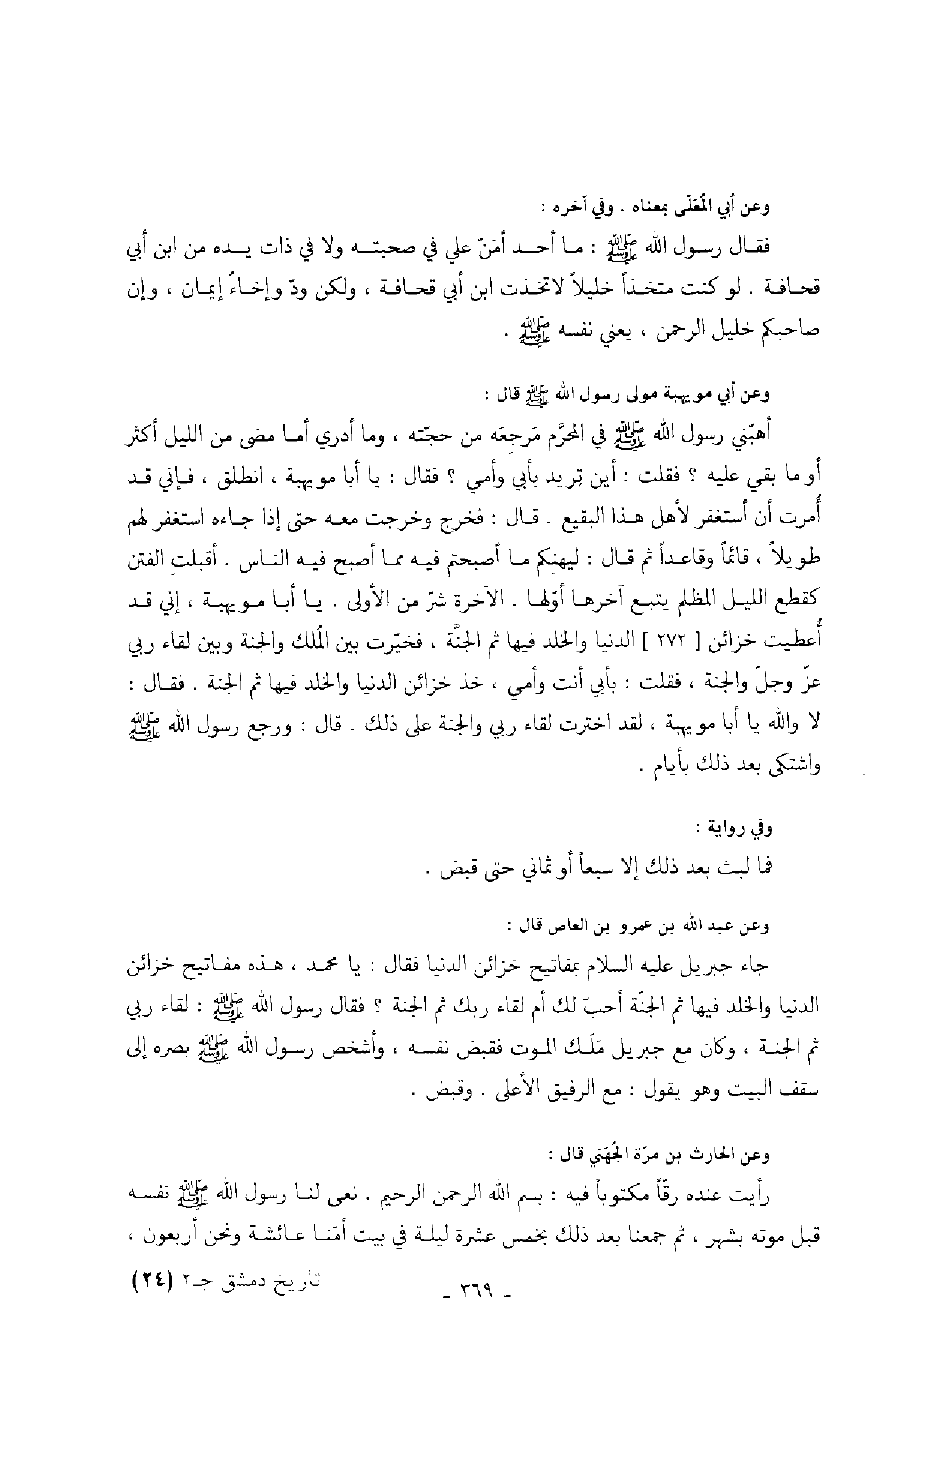 وعن أبي المُعَلّى بمعناه . وفي آخره :
فقال رسول الله ﷺ : ما أحد أمَنّ علي في صحبته ولا في ذات يده من ابن أبي
قحافة . لو كنت متخذاً خليلاً لاتخذت ابن أبي قحافة ، ولكن ودّ وإخاءُ إيمان ، وإن
صاحبكم خليل الرحمن ، يعني نفسه ﷺ .
وعن أبي مويهبة مولى رسول الله ﷺ قال :
أهبّني رسول الله ﷺ في المحرَّم مَرجِعَه من حجته ، وما أدري أما مضى من الليل أكثر
أو ما بقي عليه ؟ فقلت : أين تريد بأبي وأمي ؟ فقال : يا أبا مويهبة ، انطلق ، فإني قد
أُمرت أن أستغفر لأهل هذا البقيع . قال : فخرج وخرجت معه حتى إذا جاءه استغفر لهم
طويلاً ، قائماً وقاعداً ثم قال : ليهنكم ما أصبحتم فيه مما أصبح فيه الناس . أقبلتِ الفتن
كقطع الليل المظلم يتبع آخرها أوّلها . الآخرة شرّ من الأولى . يا أبا مويهبة ، إني قد
أُعطيت خزائن [ ٢٧٢ ] الدنيا والخلد فيها ثم الجنَّة ، فخيّرت بين المُلك والجنة وبين لقاء ربي
عزّ وجلّ والجنة ، فقلت : بأبي أنت وأمي ، خذ خزائن الدنيا والخلد فيها ثم الجنة . فقال :
لا والله يا أبا مويهبة ، لقد اخترت لقاء ربي والجنة على ذلك . قال : ورجع رسول الله ﷺ
واشتكى بعد ذلك بأيام .
وفي رواية :
فما لبث بعد ذلك إلا سبعاً أو ثماني حتى قبض .
وعن عبد الله بن عمرو بن العاص قال :
جاء جبريل عليه السلام بمفاتيح خزائن الدنيا فقال : يا محمد ، هذه مفاتيح خزائن
الدنيا والخلد فيها ثم الجنّة أحبّ لك أم لقاء ربك ثم الجنة ؟ فقال رسول الله ﷺ : لقاء ربي
ثم الجنة ، وكان مع جبريل مَلَك الموت فقبض نفسه ، وأشخص رسول الله ﷺ بصره إلى
سقف البيت وهو يقول : مع الرفيق الأعلى . وقبض .
وعن الحارث بن مرّة الجُهَني قال :
رأيت عنده رقّاً مكتوباً فيه : بسم الله الرحمن الرحيم . نعى لنا رسول الله ﷺ نفسه
قبل موته بشهر ، ثم جمعنا بعد ذلك بخمس عشرة ليلة في بيت أمّنا عائشة ونحن أربعون ،
- ٣٦٩ - تاريخ دمشق جـ٢ (٢٤)